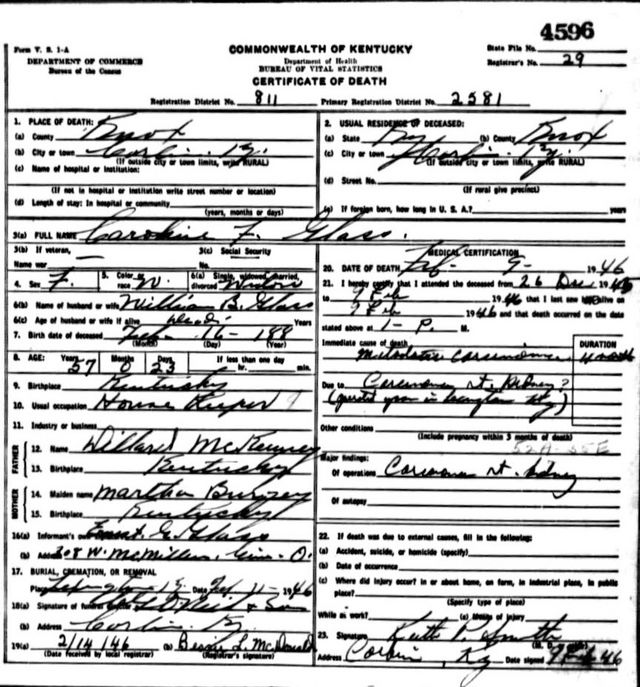 4596
Form V. S. 1-A
DEPARTMENT OF COMMERCE
Bureau of the Census
COMMONWEALTH OF KENTUCKY
Department of Health
BUREAU OF VITAL STATISTICS
CERTIFICATE OF DEATH
State File No.
Registrar's No. 29
Registration District No. 811 Primary Registration District No. 2581
1. PLACE OF DEATH:
(a) County Knox
(b) City or town Corbin Ky.
(If outside city or town limits, write RURAL)
(c) Name of hospital or institution:
(If not in hospital or institution write street number or location)
(d) Length of stay: In hospital or community
(years, months or days)
2. USUAL RESIDENCE OF DECEASED:
(a) State Ky (b) County Knox
(c) City or town Corbin Ky.
(If outside city or town limits, write RURAL)
(d) Street No.
(If rural give precinct)
(e) If foreign born, how long in U. S. A.? years
3(a) FULL NAME Caroline F. Glass.
3(b) If veteran,
Name war
3(c) Social Security
No.
4. Sex F. 5. Color or race W. 6(a) Single, widowed, married, divorced Widow
6(b) Name of husband or wife William B. Glass
6(c) Age of husband or wife if alive Dead years
7. Birth date of deceased Feb. 16- 188
(Month) (Day) (Year)
8. AGE: Years Months Days If less than one day
57 0 23 hr. min.
9. Birthplace Kentucky
10. Usual occupation House Keeper
11. Industry or business
FATHER
12. Name Willard McKenney
13. Birthplace Kentucky
MOTHER
14. Maiden name Martha
15. Birthplace Kentucky
16(a) Informant's own Ernest G. Glass
(b) Address 208 W. McMillen, Cinn. O.
17. BURIAL, CREMATION, OR REMOVAL
Place Date Feb 11- 1946
18(a) Signature of funeral O'Neil & Son
(b) Address Corbin Ky.
19(a) 2/14/46 (b) Bessie L. McDonald
(Date received by local registrar) (Registrar's signature)
MEDICAL CERTIFICATION
20. DATE OF DEATH Feb- 9- 1946
21. I hereby certify that I attended the deceased from 26 Dec 1945
to 9 Feb 1946 that I last saw alive on
9 Feb 1946 and that death occurred on the date
stated above at 1- P. M.
Immediate cause of death DURATION
Metastatic Carcinoma
Due to Carcinoma rt. Kidney?
(operated upon in Lexington Ky)
Other conditions
(Include pregnancy within 3 months of death)
Major findings:
Of operations Carcinoma rt. kidney
Of autopsy
22. If death was due to external causes, fill in the following:
(a) Accident, suicide, or homicide (specify)
(b) Date of occurrence
(c) Where did injury occur? in or about home, on farm, in industrial place, in public
place?
(Specify type of place)
While at work? (e) Means of injury
23. Signature Keith P. Smith
Address Corbin, Ky Date signed 46